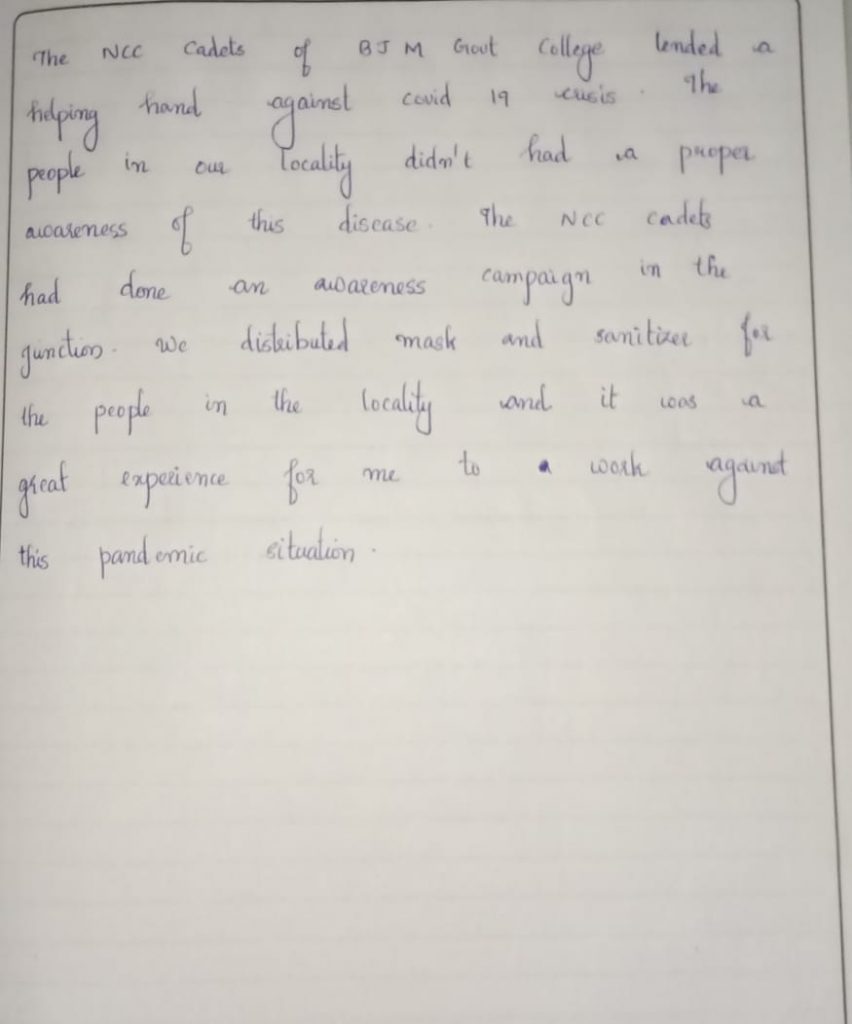 The NCC Cadets of BJM Govt College lended a
helping hand against covid 19 crisis. The
people in our locality didn't had a proper
awareness of this disease. The NCC cadets
had done an awareness campaign in the
junction. We distributed mask and sanitizer for
the people in the locality and it was a
great experience for me to a work against
this pandemic situation.